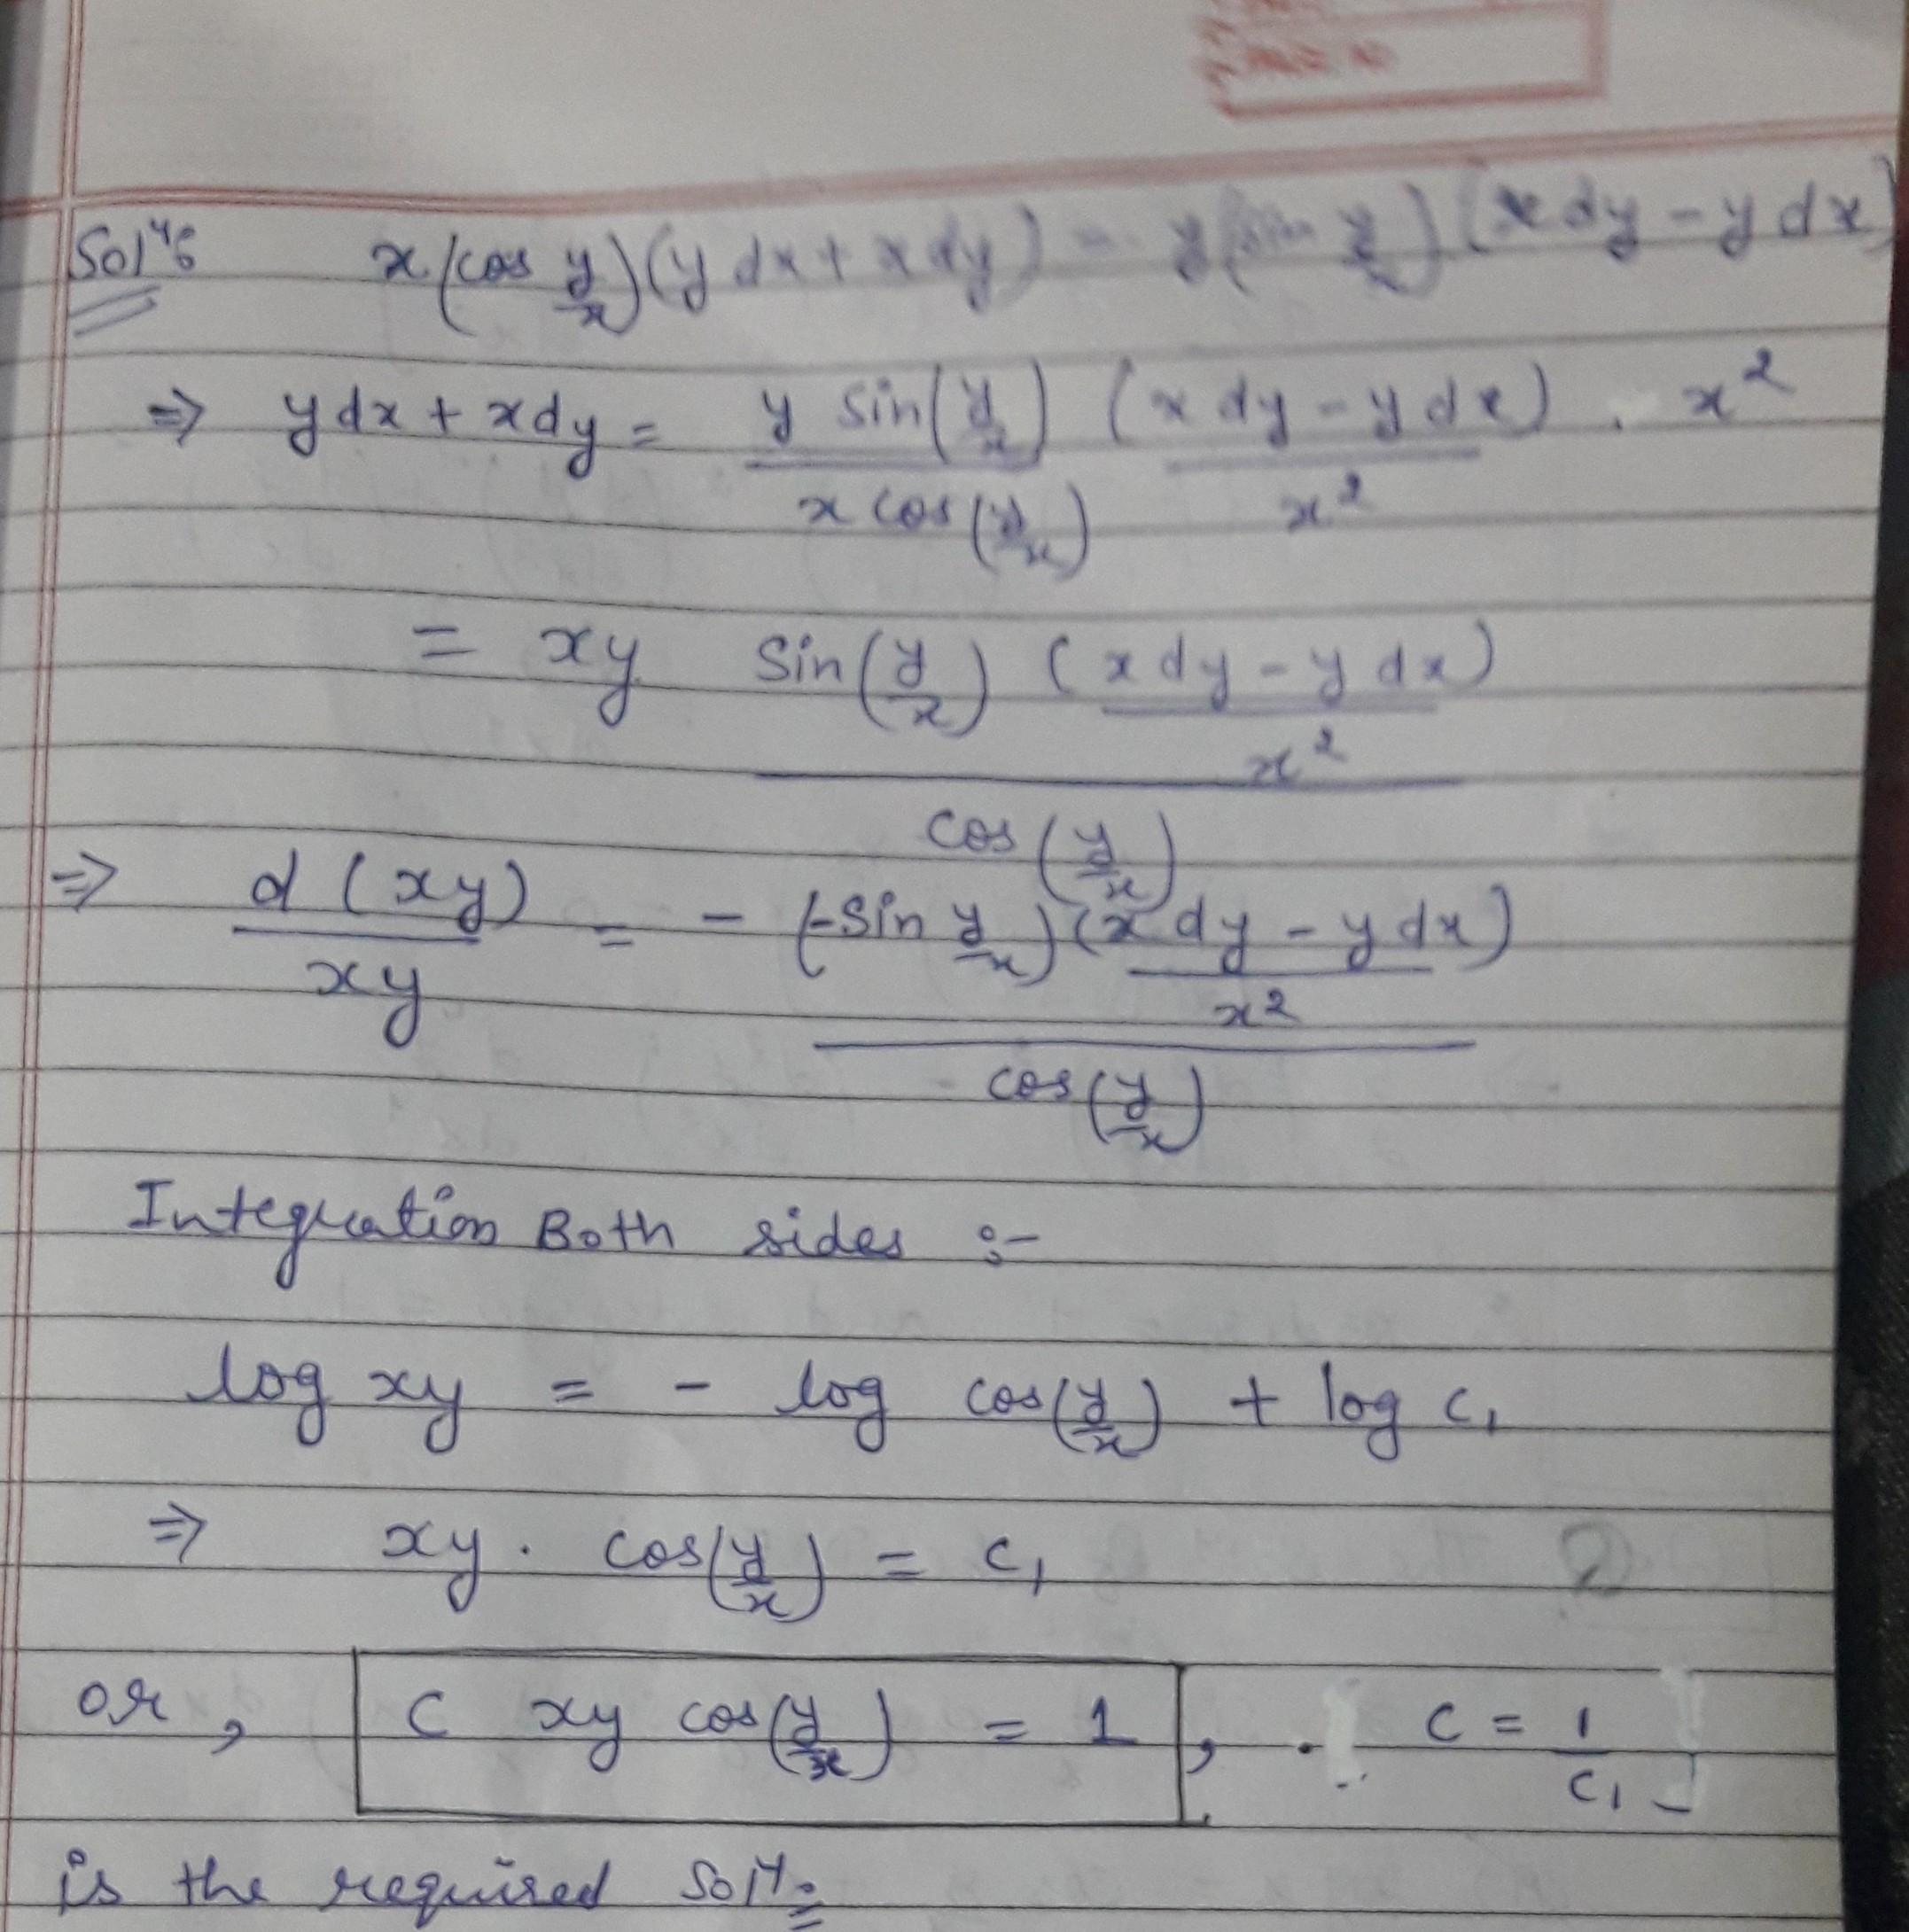 Solⁿ:
x(cos y/x)(y dx + x dy) = y(sin y/x)(x dy - y dx)
⇒ ydx + xdy = y sin(y/x) / x cos(y/x) (x dy - y dx) / x² . x²
= xy sin(y/x) (x dy - y dx) / x² / cos(y/x)
⇒ d(xy) / xy = - (-sin y/x)(x dy - y dx) / x² / cos(y/x)
Integration Both sides :-
log xy = - log cos(y/x) + log c₁
⇒ xy . cos(y/x) = c₁
or, C xy cos(y/x) = 1, C = 1/c₁
is the required Solⁿ.